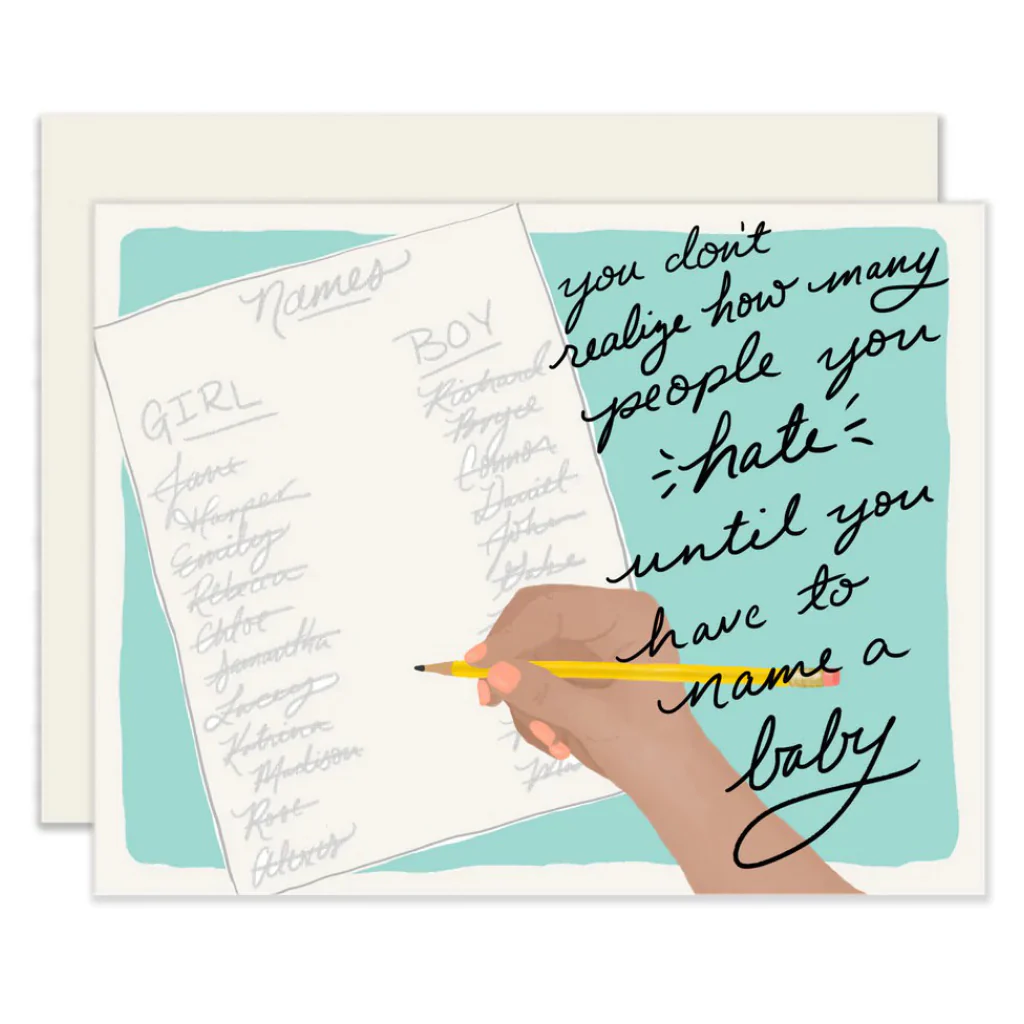 Names
GIRL
Jane
Harper
Emily
Rebecca
Chloe
Samantha
Lacey
Katrina
Madison
Rose
Alexis
BOY
Richard
Bryce
Connor
Daniel
John
Gabe
you don't
realize how many
people you
hate
until you
have to
name a
baby